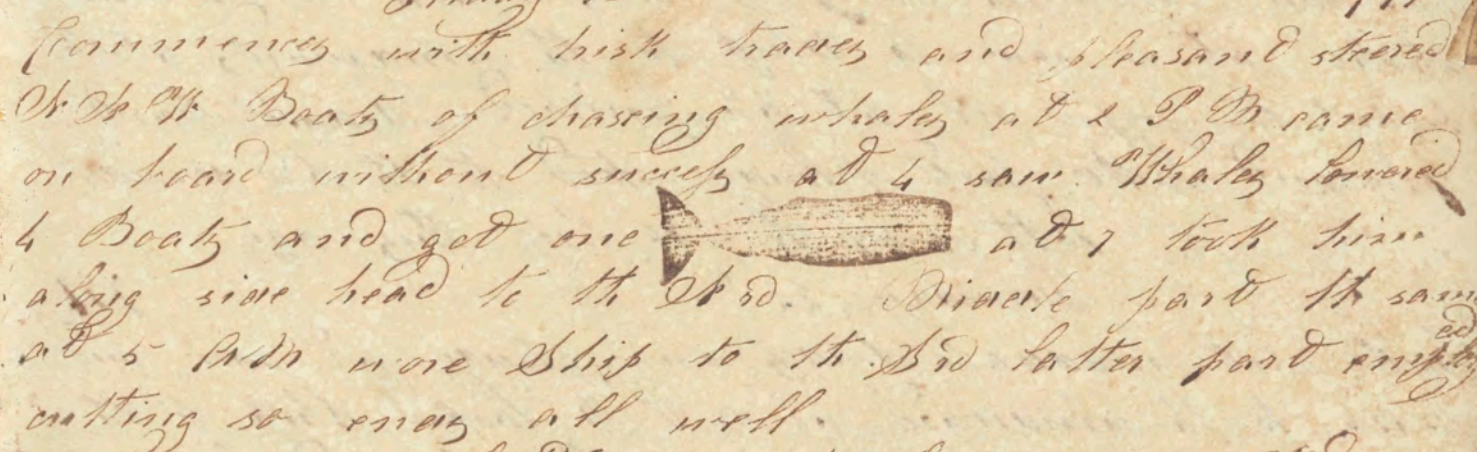 Commences with brisk trades and pleasand steered
N N W Boats of chaseing whales at 2 P M came
on board without success at 4 saw Whales lowered
4 Boats and got one at 7 took him
along side head to th Nrd Middle part th same
at 5 A M wore Ship to th Srd latter part employed
cutting so ends all well.